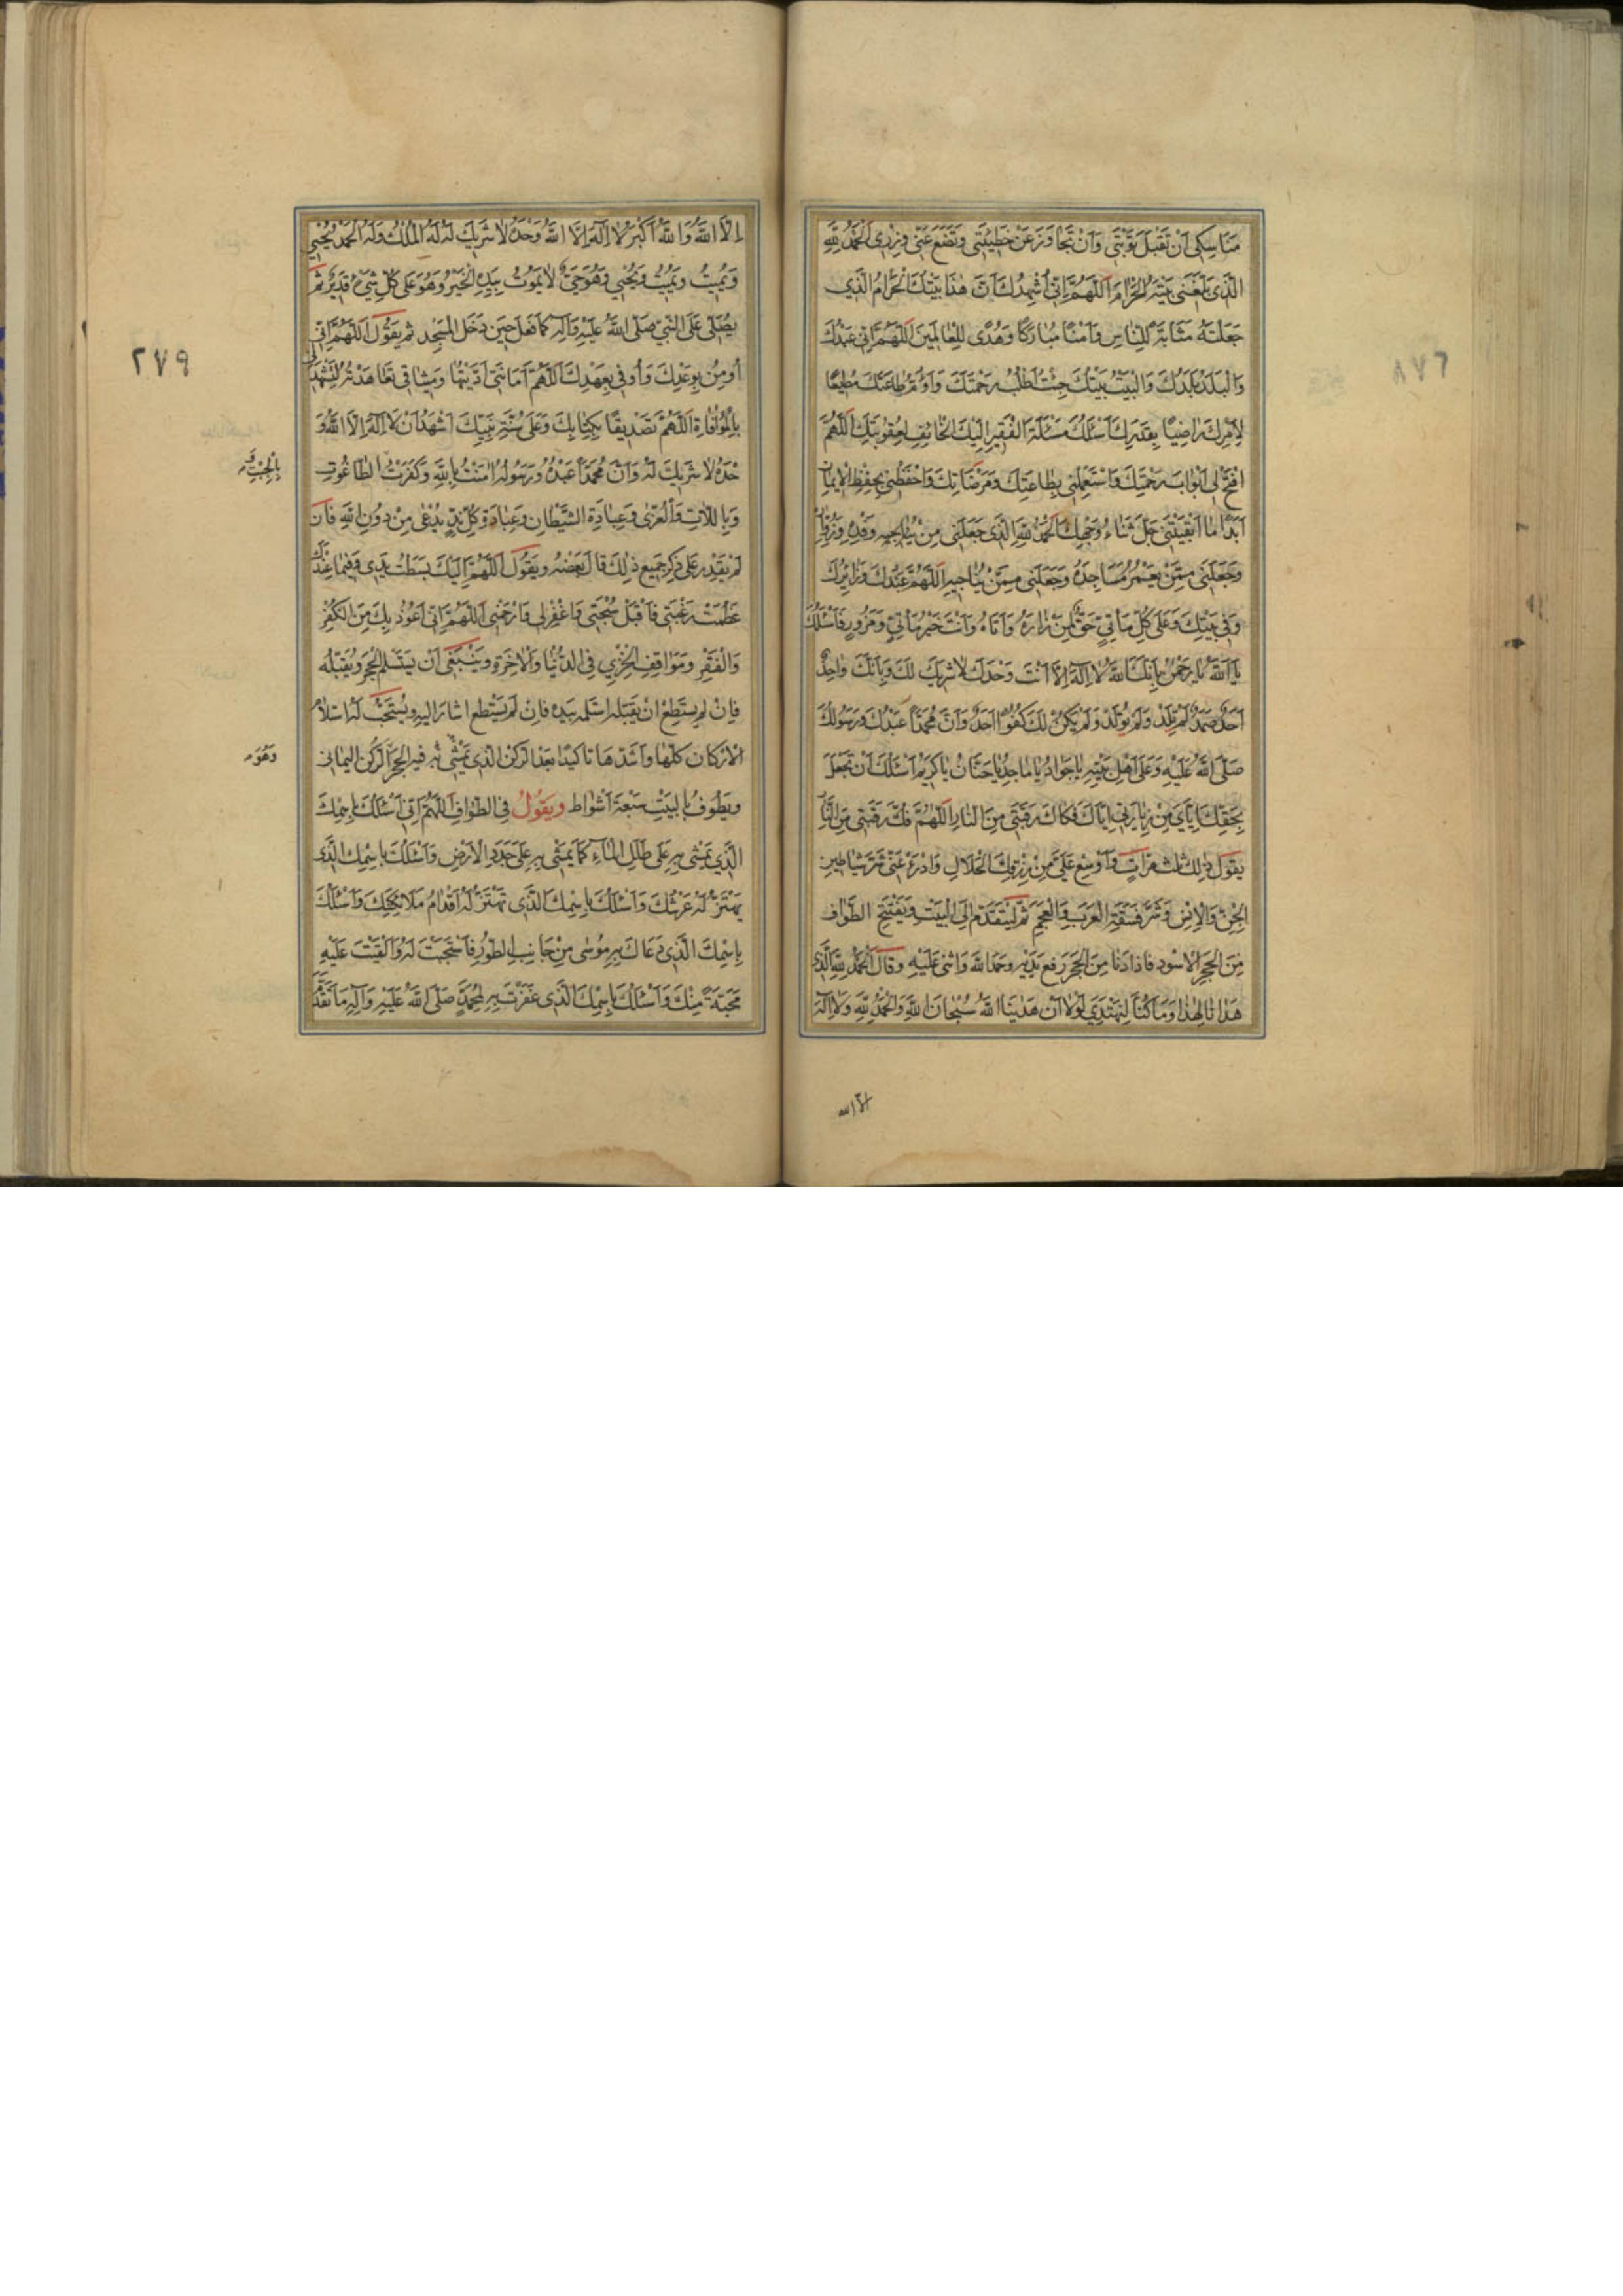 مَنَاسِكِي اَنْ تَقْبَلَ تَوْبَتِي وَاَنْ تَجَاوَزَ عَنْ خَطِيئَتِي وَتَضَعَ عَنِّي وِزْرِي اَلْحَمْدُ لِلّٰهِ
الَّذِي بَلَّغَنِي بَيْتَهُ الْحَرَامَ اَللّٰهُمَّ اِنِّي اُشْهِدُكَ اَنَّ هٰذَا بَيْتُكَ الْحَرَامُ الَّذِي
جَعَلْتَهُ مَثَابَةً لِلنَّاسِ وَاَمْنًا مُبَارَكًا وَهُدًى لِلْعَالَمِينَ اَللّٰهُمَّ اِنِّي عَبْدُكَ
وَالْبَلَدُ بَلَدُكَ وَالْبَيْتُ بَيْتُكَ جِئْتُ اَطْلُبُ رَحْمَتَكَ وَاَؤُمُّ طَاعَتَكَ مُطِيعًا
لِاَمْرِكَ رَاضِيًا بِقَدَرِكَ اَسْئَلُكَ مَسْئَلَةَ الْفَقِيرِ اِلَيْكَ الْخَائِفِ لِعُقُوبَتِكَ اَللّٰهُمَّ
افْتَحْ لِي اَبْوَابَ رَحْمَتِكَ وَاسْتَعْمِلْنِي بِطَاعَتِكَ وَمَرْضَاتِكَ وَاحْفَظْنِي بِحِفْظِ الْاِيمَانِ
اَبَدًا مَا اَبْقَيْتَنِي جَلَّ ثَنَاءُ وَجْهِكَ اَلْحَمْدُ لِلّٰهِ الَّذِي جَعَلَنِي مِنْ وَفْدِهِ وَزُوَّارِهِ
وَجَعَلَنِي مِمَّنْ يَعْمُرُ مَسَاجِدَهُ وَجَعَلَنِي مِمَّنْ يُنَاجِيهِ اَللّٰهُمَّ عَبْدُكَ وَزَائِرُكَ
وَفِي بَيْتِكَ وَعَلَى كُلِّ مَأْتِيٍّ حَقٌّ لِمَنْ زَارَهُ وَاَتَاهُ وَاَنْتَ خَيْرُ مَأْتِيٍّ وَمَزُورٍ فَاَسْئَلُكَ
يَا اَللّٰهُ يَا رَحْمٰنُ بِاَنَّكَ اللّٰهُ لَا اِلٰهَ اِلَّا اَنْتَ وَحْدَكَ لَا شَرِيكَ لَكَ وَبِاَنَّكَ وَاحِدٌ
اَحَدٌ صَمَدٌ لَمْ تَلِدْ وَلَمْ تُولَدْ وَلَمْ يَكُنْ لَكَ كُفُوًا اَحَدٌ وَاَنَّ مُحَمَّدًا عَبْدُكَ وَرَسُولُكَ
صَلَّى اللّٰهُ عَلَيْهِ وَعَلَى اَهْلِ بَيْتِهِ يَا جَوَادُ يَا مَاجِدُ يَا حَنَّانُ يَا كَرِيمُ اَسْئَلُكَ اَنْ تَجْعَلَ
فَكَاكَ رَقَبَتِي مِنَ النَّارِ اَللّٰهُمَّ فُكَّ رَقَبَتِي مِنَ النَّارِ
يقول ذلك ثلث مرات وَاَوْسِعْ عَلَيَّ مِنْ رِزْقِكَ الْحَلَالِ وَادْرَءْ عَنِّي شَرَّ شَيَاطِينِ
الْجِنِّ وَالْاِنْسِ وَشَرَّ فَسَقَةِ الْعَرَبِ وَالْعَجَمِ ثم ليتقدم الى البيت ويفتتح الطواف
من الحجر الاسود فاذا دنا من الحجر رفع يديه وحمد الله واثنى عليه وقال اَلْحَمْدُ لِلّٰهِ الَّذِي
هَدَانَا لِهٰذَا وَمَا كُنَّا لِنَهْتَدِيَ لَوْلَا اَنْ هَدٰينَا اللّٰهُ سُبْحَانَ اللّٰهِ وَالْحَمْدُ لِلّٰهِ وَلَا اِلٰهَ
الا الله
اِلَّا اللّٰهُ وَاللّٰهُ اَكْبَرُ لَا اِلٰهَ اِلَّا اللّٰهُ وَحْدَهُ لَا شَرِيكَ لَهُ لَهُ الْمُلْكُ وَلَهُ الْحَمْدُ يُحْيِي
وَيُمِيتُ وَيُمِيتُ وَيُحْيِي وَهُوَ حَيٌّ لَا يَمُوتُ بِيَدِهِ الْخَيْرُ وَهُوَ عَلَى كُلِّ شَيْءٍ قَدِيرٌ ثم
يصلى على النبي صلى الله عليه واله كما فعل حين دخل المسجد ثم يقول اَللّٰهُمَّ اِنِّي
اُومِنُ بِوَعْدِكَ وَاُوفِي بِعَهْدِكَ اَللّٰهُمَّ اَمَانَتِي اَدَّيْتُهَا وَمِيثَاقِي تَعَاهَدْتُهُ لِتَشْهَدَ لِي
بِالْمُوَافَاةِ اَللّٰهُمَّ تَصْدِيقًا بِكِتَابِكَ وَعَلَى سُنَّةِ نَبِيِّكَ اَشْهَدُ اَنْ لَا اِلٰهَ اِلَّا اللّٰهُ وَ
حْدَهُ لَا شَرِيكَ لَهُ وَاَنَّ مُحَمَّدًا عَبْدُهُ وَرَسُولُهُ اٰمَنْتُ بِاللّٰهِ وَكَفَرْتُ الطَّاغُوتِ
بِالْجِبْتِ وَ
وَبِاللَّاتِ وَالْعُزّٰى وَعِبَادَةِ الشَّيْطَانِ وَعِبَادَةِ كُلِّ نِدٍّ يُدْعٰى مِنْ دُونِ اللّٰهِ فان
لم يقدر على ذكر جميع ذلك قال بعضه ويقول اَللّٰهُمَّ اِلَيْكَ بَسَطْتُ يَدِي وَفِيمَا عِنْدَكَ
عَظُمَتْ رَغْبَتِي فَاقْبَلْ سُبْحَتِي وَاغْفِرْ لِي وَارْحَمْنِي اَللّٰهُمَّ اِنِّي اَعُوذُ بِكَ مِنَ الْكُفْرِ
وَالْفَقْرِ وَمَوَاقِفِ الْخِزْيِ فِي الدُّنْيَا وَالْاٰخِرَةِ وينبغى ان يستلم الحجر ويقبله
فان لم يستطع ان يقبله استلمه بيده فان لم يستطع اشار اليه ويستحب له استلام
الاركان كلها واشدها تاكيدا بعد الركن الذى فيه الحجر الركن اليمانى
وَهُوَ
ويطوف بالبيت سبعة اشواط ويقول فى الطواف اَللّٰهُمَّ اِنِّي اَسْئَلُكَ بِاسْمِكَ
الَّذِي يُمْشٰى بِهِ عَلَى طَلَلِ الْمَاءِ كَمَا يُمْشٰى بِهِ عَلَى جَدَدِ الْاَرْضِ وَاَسْئَلُكَ بِاسْمِكَ الَّذِي
يَهْتَزُّ لَهُ عَرْشُكَ وَاَسْئَلُكَ بِاسْمِكَ الَّذِي تَهْتَزُّ لَهُ اَقْدَامُ مَلَائِكَتِكَ وَاَسْئَلُكَ
بِاسْمِكَ الَّذِي دَعَاكَ بِهِ مُوسٰى مِنْ جَانِبِ الطُّورِ فَاسْتَجَبْتَ لَهُ وَاَلْقَيْتَ عَلَيْهِ
مَحَبَّةً مِنْكَ وَاَسْئَلُكَ بِاسْمِكَ الَّذِي غَفَرْتَ بِهِ لِمُحَمَّدٍ صَلَّى اللّٰهُ عَلَيْهِ وَاٰلِهِ مَا تَقَدَّمَ
٢٧٩